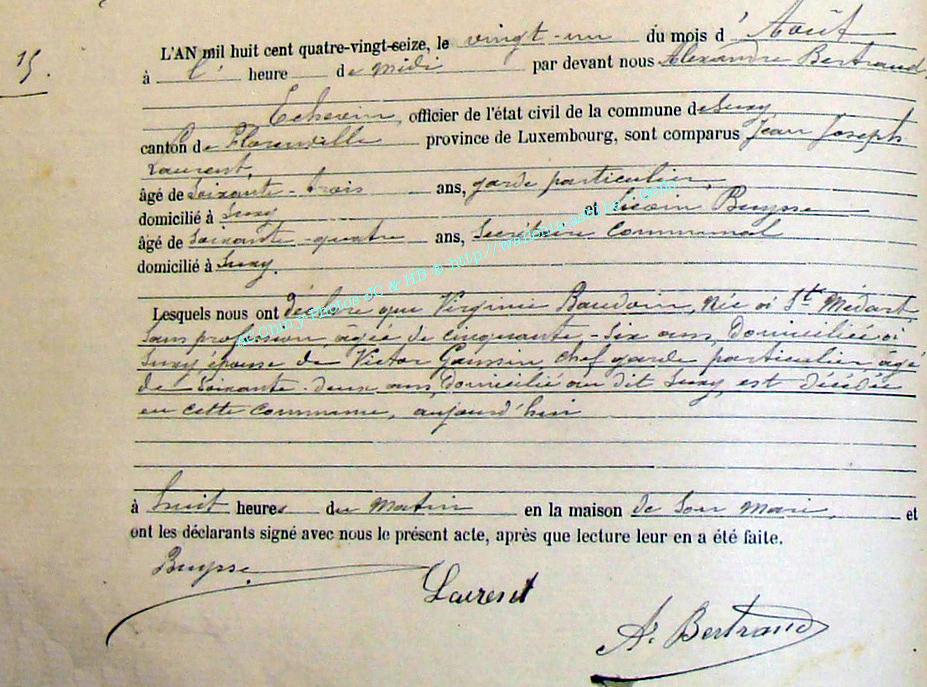 15.
L'AN mil huit cent quatre-vingt-seize, le vingt-un du mois d'Août
à l' heure de midi par devant nous Alexandre Bertrand,
Echevin, officier de l'état civil de la commune de Suxy
canton de Florenville province de Luxembourg, sont comparus Jean Joseph
Laurent,
âgé de Soixante-trois ans, garde particulier,
domicilié à Suxy et Buysse
âgé de Soixante-quatre ans, Secrétaire Communal
domicilié à Suxy.
Lesquels nous ont déclaré que Virginie Baudoin, Née à St Médart,
Sans profession, âgée de cinquante-six ans, Domiciliée à
Suxy, épouse de Victor Gaussin chef garde particulier, âgé
de Soixante-deux ans, Domicilié au dit Suxy, est décédée
en cette Commune, aujourd'hui
à huit heures du Matin en la maison de Son Mari, et
ont les déclarants signé avec nous le présent acte, après que lecture leur en a été faite.
Buysse
Laurent
A. Bertrand
Photos JC & HB © http://